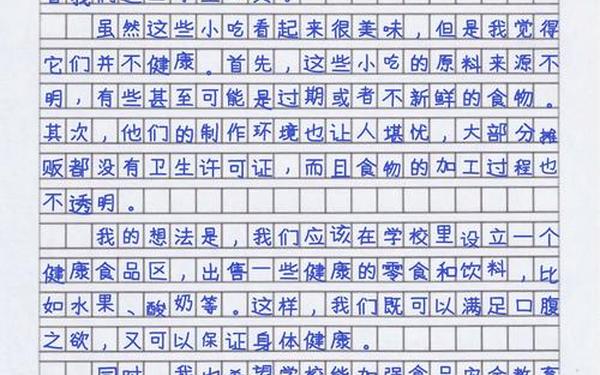 虽然这些小吃看起来很美味，但是我觉得
它们并不健康。首先，这些小吃的原料来源不
明，有些甚至可能是过期或者不新鲜的食物。
其次，他们的制作环境也让人堪忧，大部分摊
贩都没有卫生许可证，而且食物的加工过程也
不透明。
我的想法是，我们应该在学校里设立一个
健康食品区，出售一些健康的零食和饮料，比
如水果、酸奶等。这样，我们既可以满足口腹
之欲，又可以保证身体健康。
同时，我也希望学校能加强食品安全教育